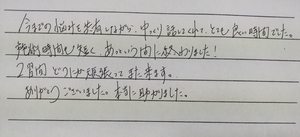 今までの悩みを共有しながら、ゆっくり話してくれて、とても良い時間でした。
時間も短く あっという間に終わりました！
2週間 どうにか頑張って また来ます。
ありがとうございました。本当に助かりました。